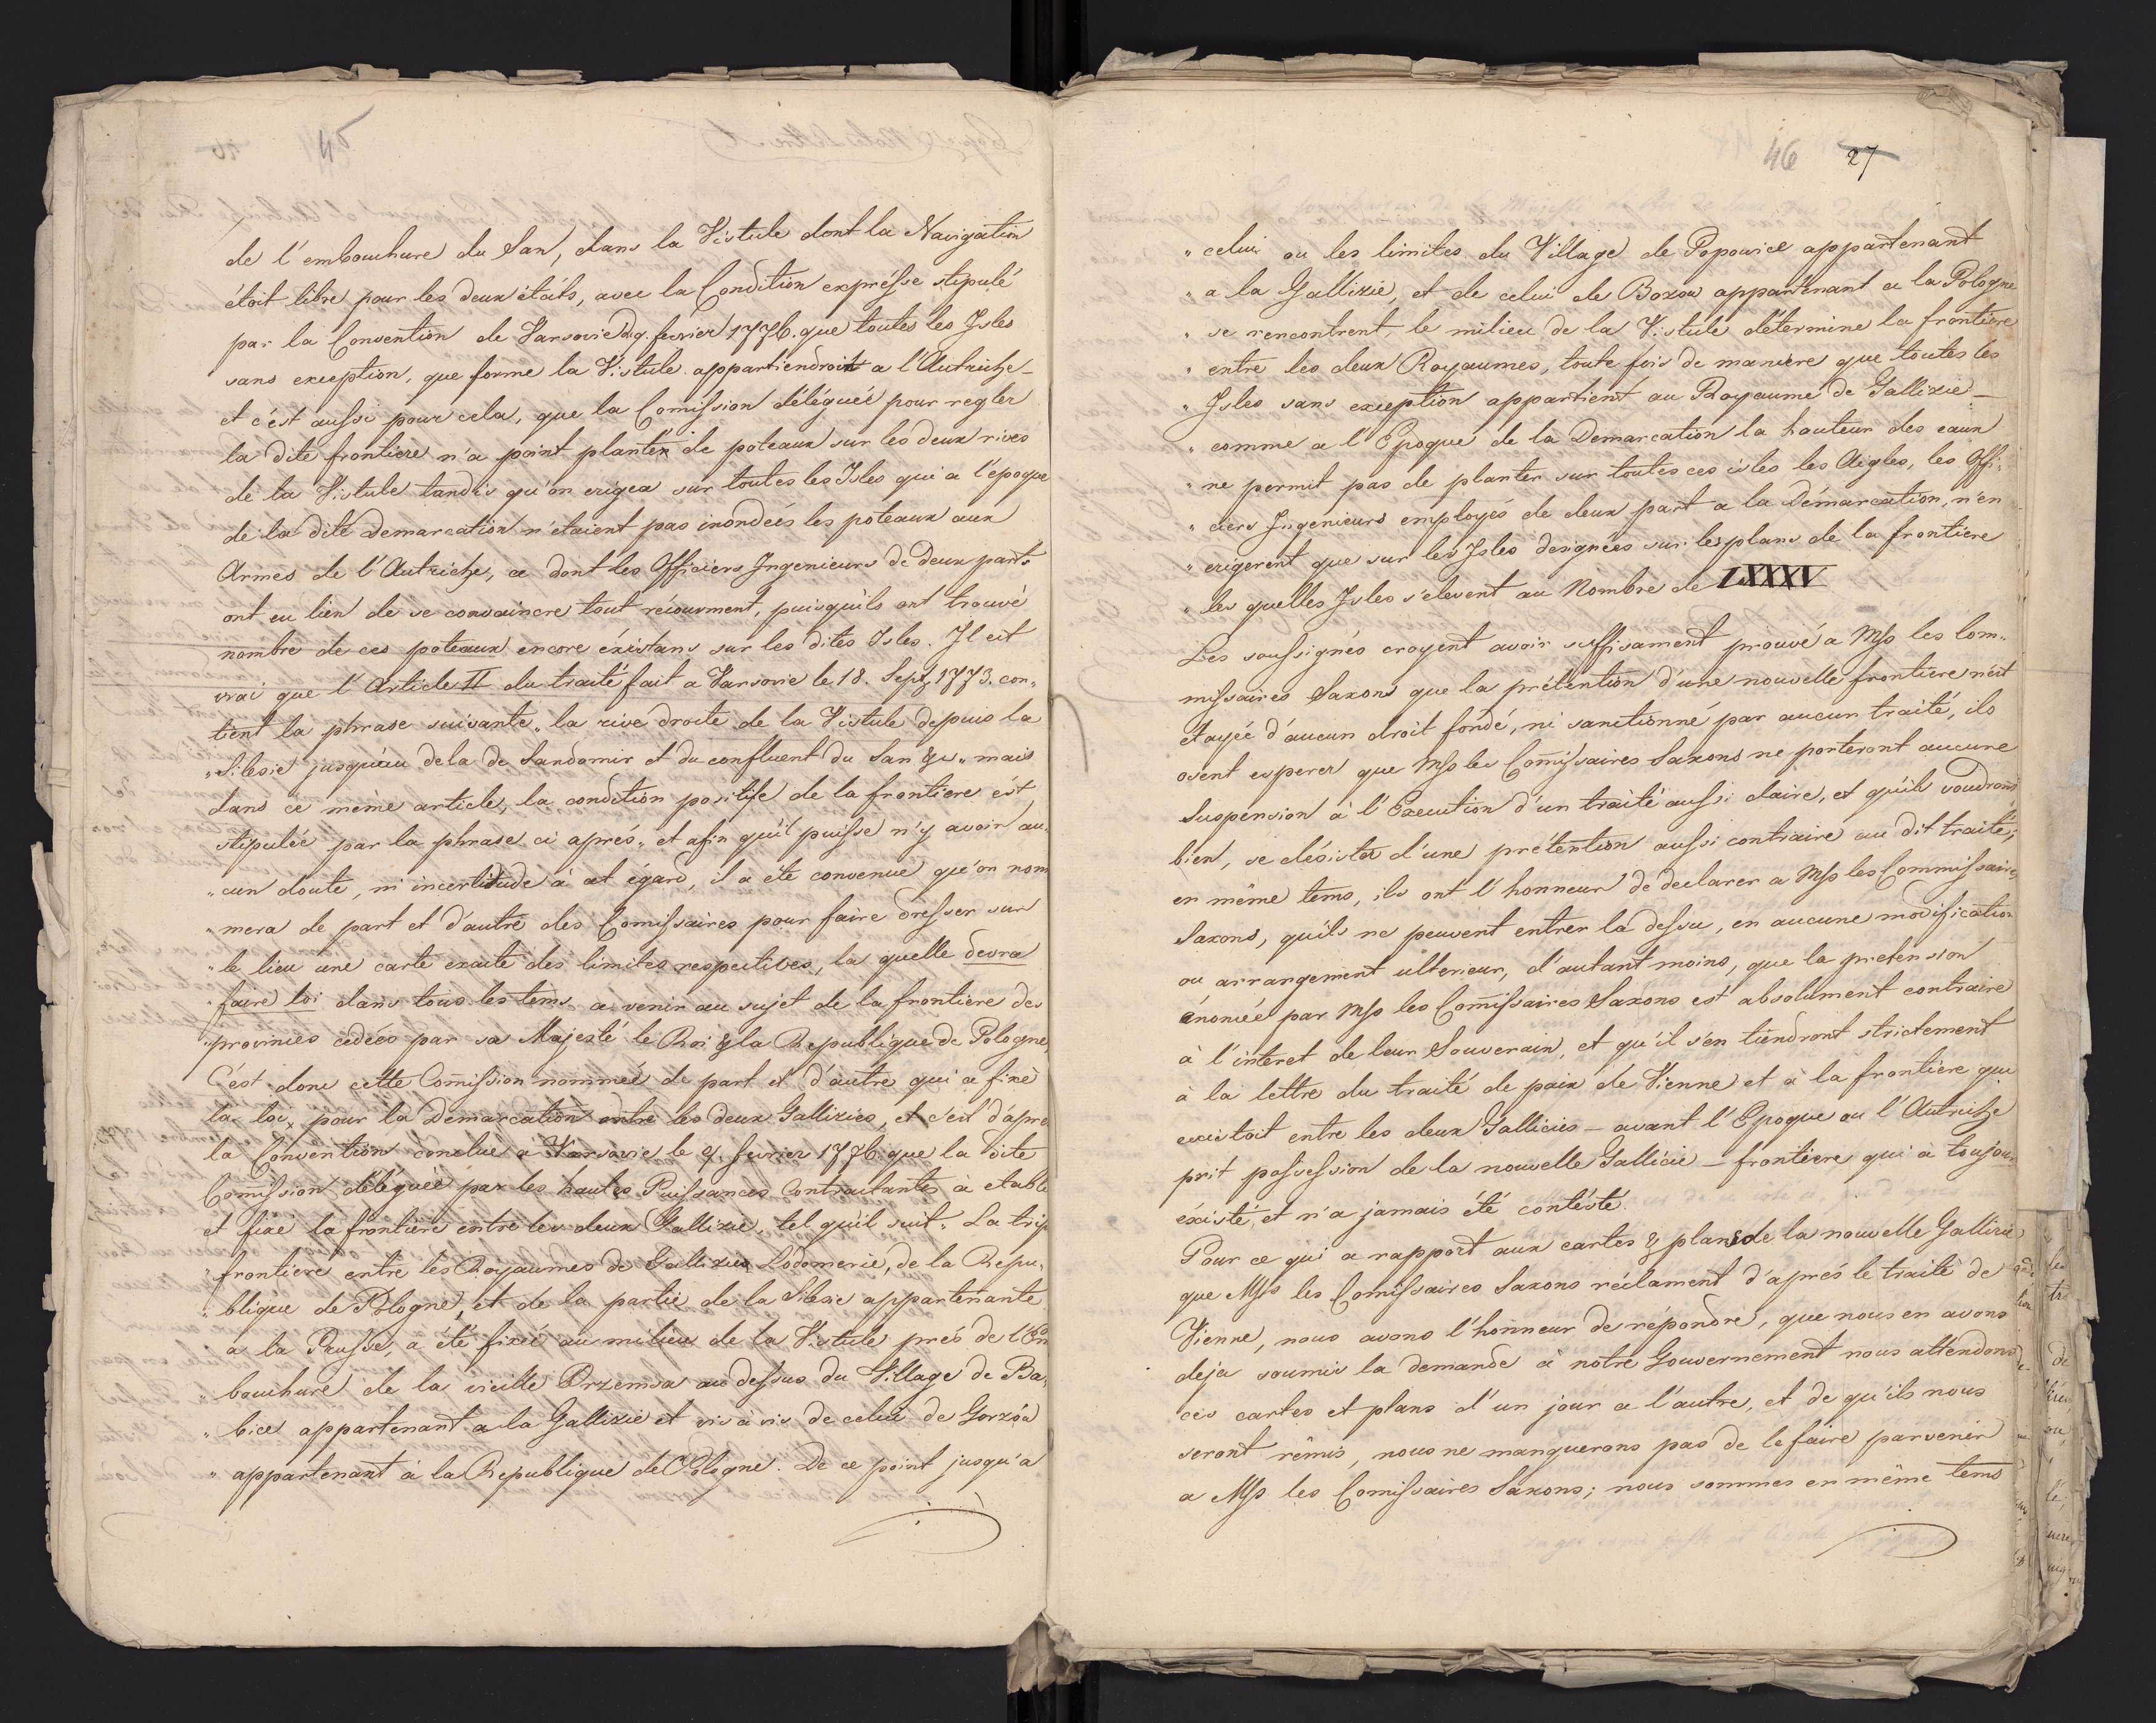 45
de l'embouchure du San, dans la Vistule dont la Navigation
étoit libre pour les deux états, avec la Condition expréſse stipulé
par la Convention de Varsovie d. 9. fevrier 1776. que toutes les Isles
sans exception, que forme la Vistule appartiendroit a l'Autriche_
et c'est auſsi pour cela, que la Comiſsion déléguée pour regler
la dite frontiere n'a point planter de poteaux sur les deux rives
de la Vistule tandis qu'on erigea sur toutes les Isles qui a l'époque
de la dite Demarcation n'étaient pas inondeés les poteaux aux
Armes de l'Autriche, ce dont les Officiers Ingenieurs de deux parts
ont eu lieu de se convaincre tout récourment, puisqu'ils ont trouvé
nombre de ces poteaux encore éxistans sur les dites Isles. Il est
vrai que l'Article II du traité fait a Varsovie le 18. Sept. 1773. con„
tient la phrase suivante „ la rive droite de la Vistule depuis la
„ Silesie jusqu'au dela de Sandomir et du confluent du San &c „ mais
dans ce même article, la condition positife de la frontiere ést
stipulée par la phrase ci aprés „ et afin qu'il puiſse n'y avoir au„
„ cun doute, ni incertitude à cet égard, il a éte convenue qu'on nom
„ mera de part et d'autre des Comiſsaires pour faire dreſser sur
„ le lieu une carte exacte des limites respectives, la quelle devra
„ faire loi dans tous les tems a venir au sujet de la frontiere des
„ provinces cédées par sa Majesté le Roi & la Republique de Pologne,
C'est donc cette Comiſsion nommeé de part et d'autre qui a fixé
la loi, pour la Demarcation entre les deux Gallizies, et c'est d'apre
la Convention conclue à Varsovie le 9. fevrier 1776 que la dite
Comiſsion déléguée par les hautes Puiſsances Contractantes à etabli
et fixé la frontiere entre les deux Gallizie, tel qu'il suit „ La trip
„ frontiere entre les Royaumes de Gallizie Lodomerie, de la Repu„
„ blique de Pologne, et de la partie de la Silesie appartenante
„ a la Pruſse, a été fixé au milieu de la Vistule prés de l'Em
„ bouchure de la vieille Przemsa au deſsus du Village de Ba„
„ bice appartenant a la Gallizie et vis à vis de celui de Gorzów
„ appartenant à la Republique de Pologne. De ce point jusqu'a
46 27
„ celui ou les limites du Village de Popowice appartenant
„ a la Gallizie, et de celui de Bozow appartenant a la Pologne
„ se rencontrent, le milieu de la Vistule détermine la frontiere
„ entre les deux Royaumes, toute fois de maniere que toutes les
„ Isles sans exception appartient au Royaume de Gallizie _
„ comme a l'Epoque de la Demarcation la hauteur des eaux
„ ne permit pas de planter sur toutes ces isles les Aigles, les Offi„
„ ciers Ingenieurs employés de deux part a la Démarcation, n'en
„ erigerent que sur les Isles designées sur les plans de la frontiere
„ les quelles Isles s'élevent au Nombre de LXXXV
Les souſsignés croyent avoir suffisament prouvé a Mſs les Com„
miſsaires Saxons que la prétention d'une nouvelle frontiere n'est
etayée d'aucun droit fondé, ni sanctionné par aucun traité, ils
osent esperer que Mſs les Comiſsaires Saxons ne porteront aucune
Suspension à l'Execution d'un traité auſsi claire, et qu'ils voudront
bien, se désister d'une prétention auſsi contraire au dit traité;
en même tems, ils ont l'honneur de declarer a Mſs les Commiſsaires
Saxons, qu'ils ne peuvent entrer la deſsu, en aucune modification
ou arrangement ulterieur, d'autant moins, que la pretension
énoncée par Mſs les Comiſsaires Saxons est absolument contraire
à l'interet de leur Souverain, et qu'il s'en tiendront strictement
à la lettre du traité de paix de Vienne et à la frontière qui
existoit entre les deux Gallicies _ avant l'Epoque ou l'Autriche
prit poſseſsion de la nouvelle Gallicie _ frontiere qui à toujour
éxisté, et n'a jamais été contésté.
Pour ce qui a rapport aux cartes & plans de la nouvelle Gallizie
que Mſs les Comiſsaires Saxons réclament d'aprés le traité de
Vienne, nous avons l'honneur de répondre, que nous en avons
deja soumis la demande à notre Gouvernement nous attendons
ces cartes et plans d'un jour a l'autre, et de qu'ils nous
seront rémis, nous ne manquerons pas de le faire parvenir
a Mſs les Comiſsaires Saxons; nous sommes en même tems